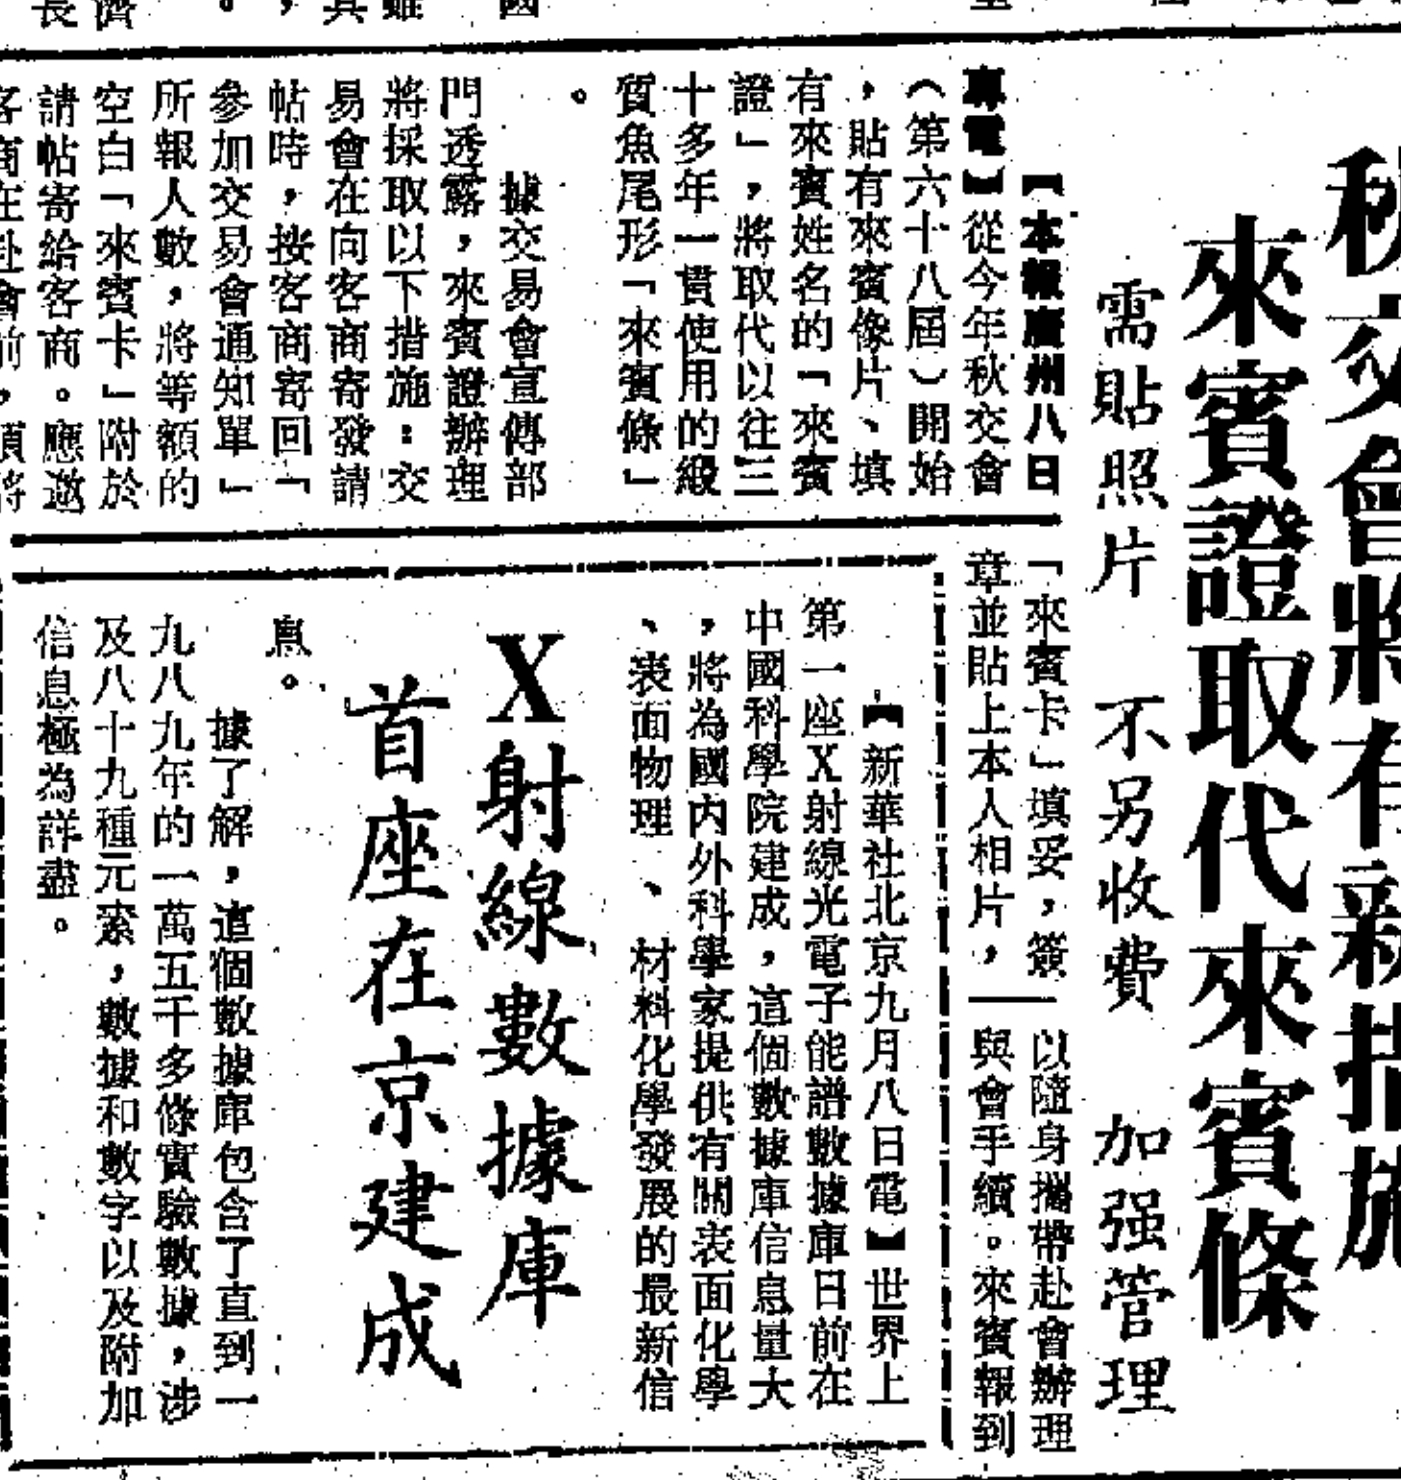 秋交會將有新措施
來賓證取代來賓條
需貼照片　不另收費　加强管理
【本報廣州八日
專電】從今年秋交會
（第六十八屆）開始
，貼有來賓像片、填
有來賓姓名的「來賓
證」，將取代以往三
十多年一貫使用的緞
質魚尾形「來賓條」
。
據交易會宣傳部
門透露，來賓證辦理
將採取以下措施：交
易會在向客商寄發請
帖時，按客商寄回「
參加交易會通知單」
所報人數，將等額的
空白「來賓卡」附於
請帖寄給客商。應邀
客商在赴會前，須將
「來賓卡」填妥，簽
章並貼上本人相片，
以隨身攜帶赴會辦理
與會手續。來賓報到
X射線數據庫
首座在京建成
【新華社北京九月八日電】世界上
第一座X射線光電子能譜數據庫日前在
中國科學院建成，這個數據庫信息量大
，將為國內外科學家提供有關表面化學
、表面物理、材料化學發展的最新信
息。
據了解，這個數據庫包含了直到一
九八九年的一萬五千多條實驗數據，涉
及八十九種元素，數據和數字以及附加
信息極為詳盡。